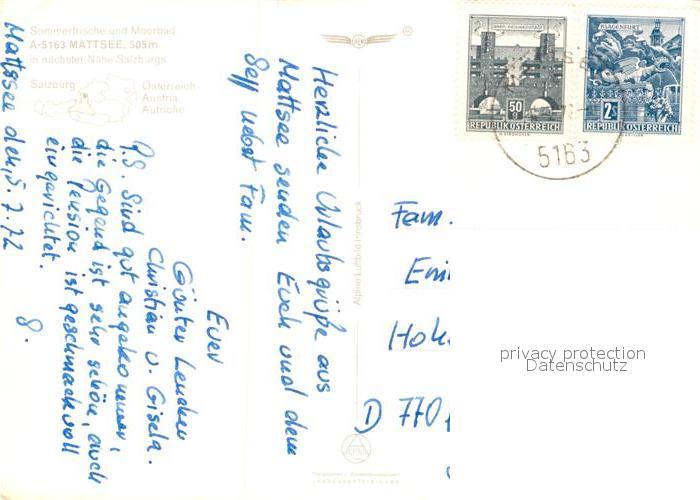 Sommerfrische und Moorbad
A-5163 MATTSEE, 505m
in nächster Nähe Salzburgs
Salzburg
Österreich
Austria
Autriche
Mattsee den, 5.7.72
Herzliche Urlaubsgrüße aus
Mattsee senden Euch und dem
Sepp nebst Fam.
Euer
Günter
Christian u. Gisela.
P.S. Sind gut angekommen,
die Gegend ist sehr schön, auch
die Pension ist geschmackvoll
eingerichtet.
Alpine Luftbild Innsbruck
WIEN-HEILIGENSTADT
50 g
REPUBLIK ÖSTERREICH
KLAGENFURT
2 S
REPUBLIK ÖSTERREICH
5163
Fam.
Emi
Hoh
D 770
privacy protection
Datenschutz